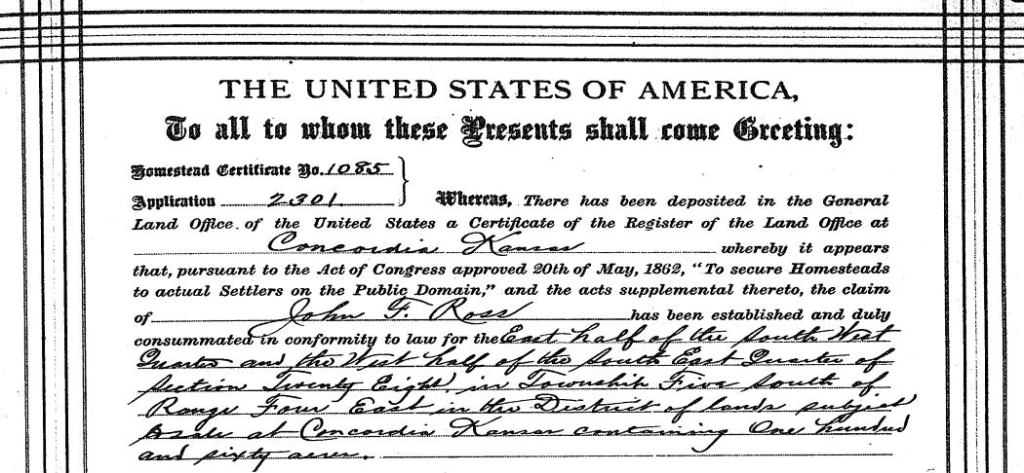 THE UNITED STATES OF AMERICA,
To all to whom these Presents shall come Greeting:
Homestead Certificate No. 1085
Application 2301 Whereas, There has been deposited in the General
Land Office of the United States a Certificate of the Register of the Land Office at
Concordia Kansas whereby it appears
that, pursuant to the Act of Congress approved 20th of May, 1862, "To secure Homesteads
to actual Settlers on the Public Domain," and the acts supplemental thereto, the claim
of John F. Ross has been established and duly
consummated in conformity to law for the East half of the South West
Quarter and the West half of the South East Quarter of
Section Twenty Eight, in Township Five South of
Range Four East in the District of lands subject
to sale at Concordia Kansas containing One hundred
and sixty acres.